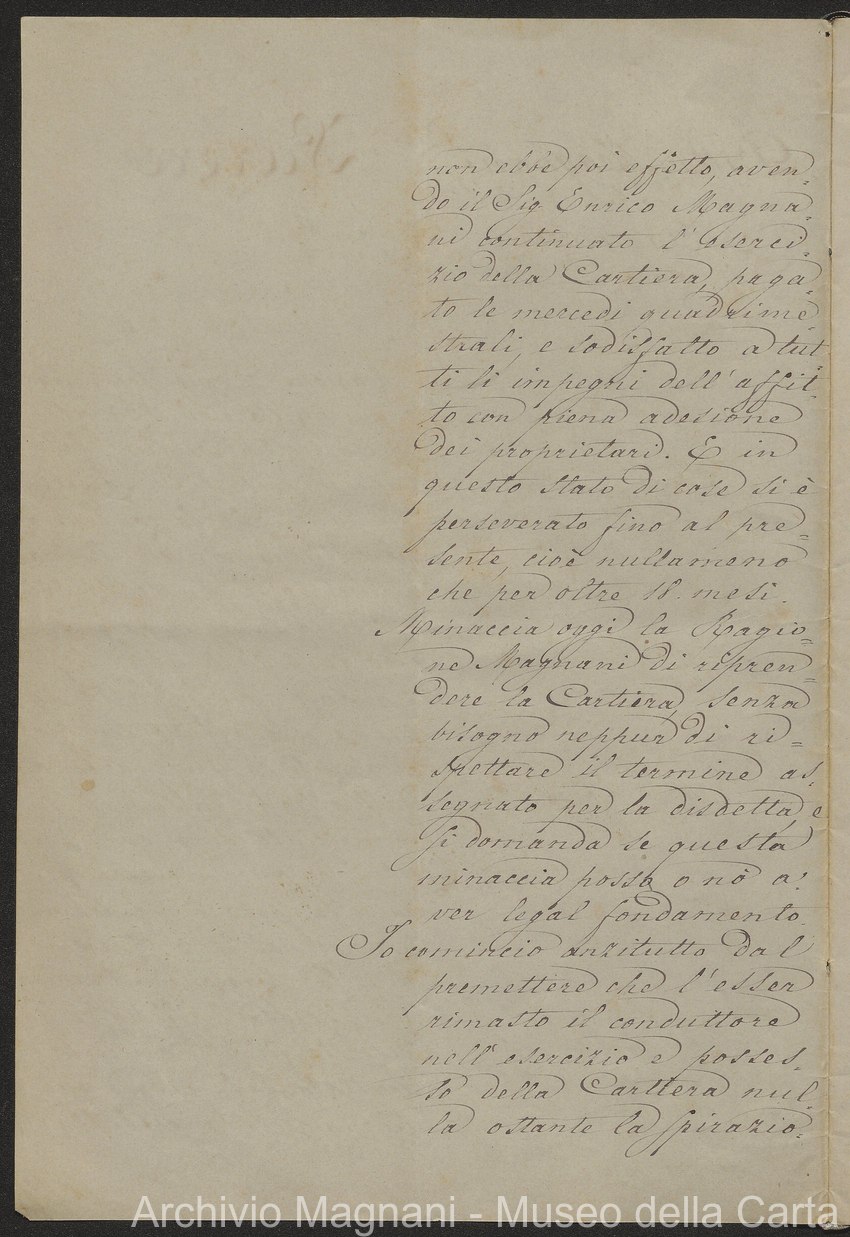 non ebbe poi effetto, aven-
do il Sig. Enrico Magna-
ni continuato l'eserci-
zio della Cartiera, paga-
to le mercedi quadrime-
strali, e sodisfatto a tut-
ti li impegni dell'affit-
to con piena adesione
dei proprietari. E in
questo stato di cose si è
perseverato fino al pre=
sente, cioè nullameno
che per oltre 18. mesi.
Minaccia oggi la Ragio=
ne Magnani di ripren=
dere la Cartiera, senza
bisogno neppur di ri=
spettare il termine as-
segnato per la disdetta, e
si domanda se questa
minaccia possa o nò a-
ver legal fondamento.
Io comincio anzitutto dal
premettere che l'esser
rimasto il conduttore
nell'esercizio e posses-
so della Cartiera nul-
la ostante la spirazio-
Archivio Magnani - Museo della Carta